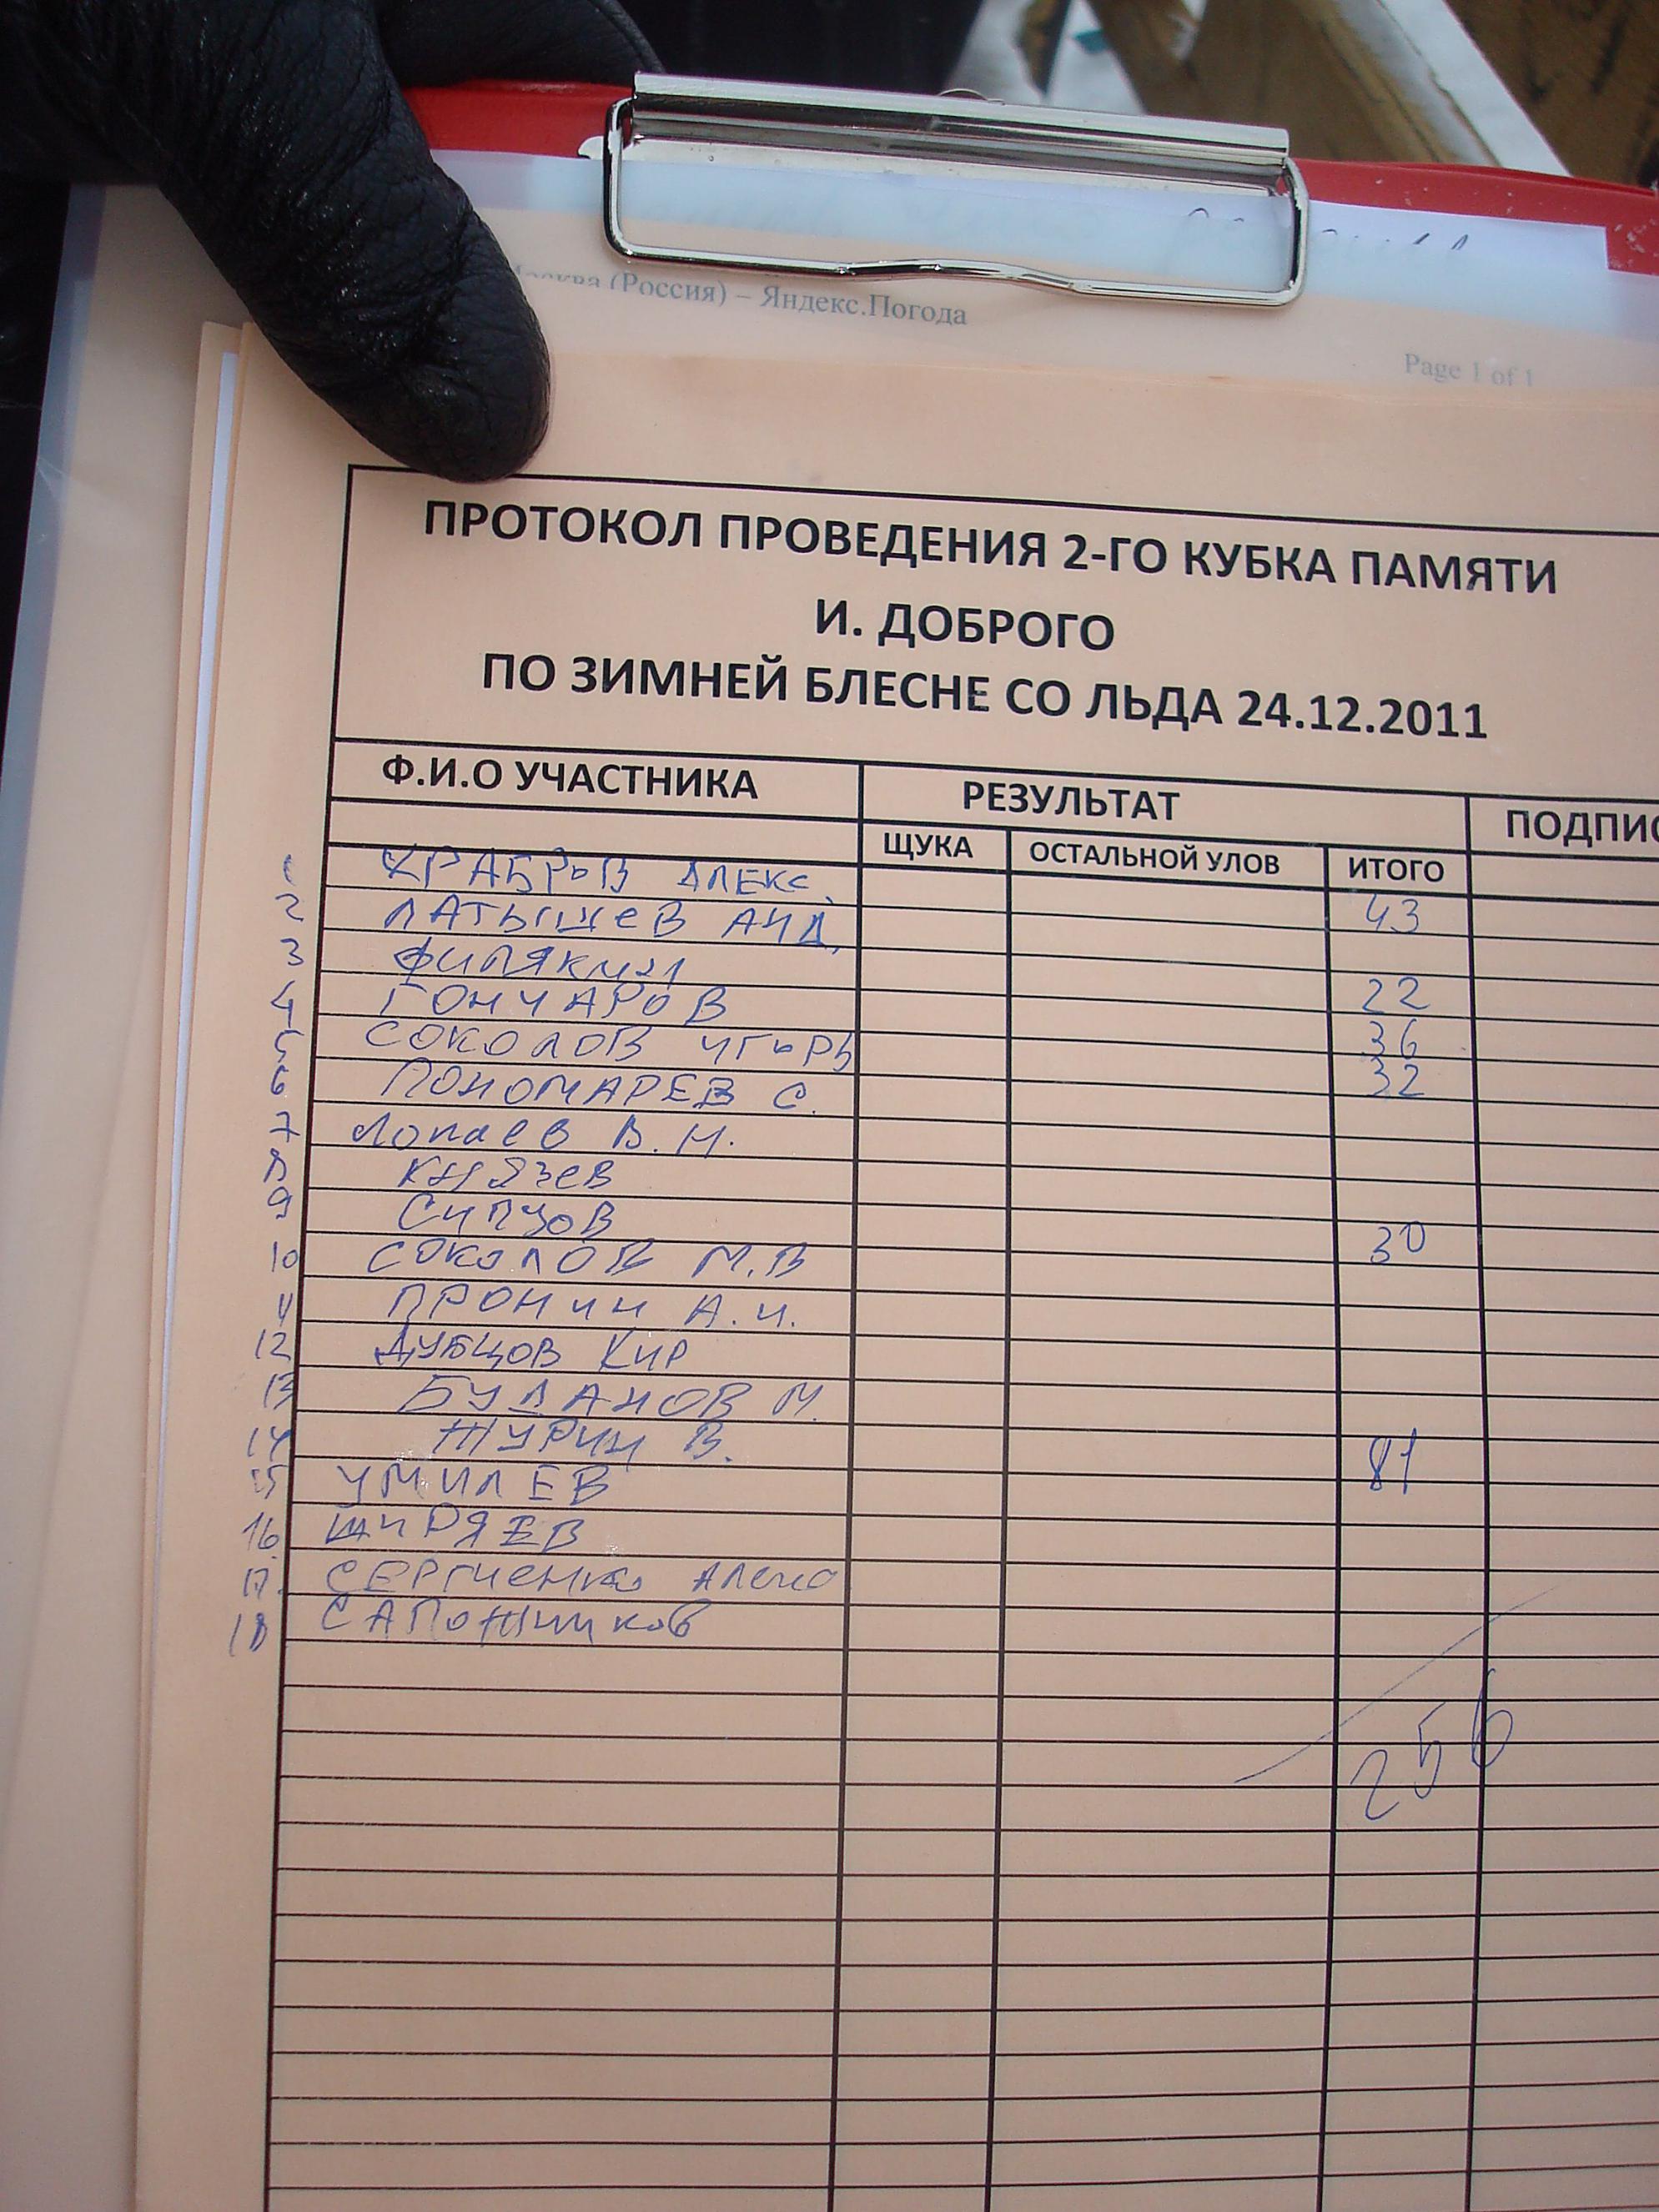 (Россия) – Яндекс.Погода
Page 1 of 1
ПРОТОКОЛ ПРОВЕДЕНИЯ 2-ГО КУБКА ПАМЯТИ
И. ДОБРОГО
ПО ЗИМНЕЙ БЛЕСНЕ СО ЛЬДА 24.12.2011
Ф.И.О УЧАСТНИКА РЕЗУЛЬТАТ
ЩУКА ОСТАЛЬНОЙ УЛОВ ИТОГО
1 ХРАБРОВ АЛЕКС.
2 ЛАТЫШЕВ АНД. 43
3
4 ГОНЧАРОВ 22
5 СОКОЛОВ ИГОРЬ 36
6 ПОНОМАРЕВ С. 32
7 Лопаев В.Н.
8 КНЯЗЕВ
9 СИПЦОВ
10 СОКОЛОВ М.В 30
11 ПРОНИН А.И.
12 ДУБЦОВ КИР
13 БУДАНОВ М.
14 ЖУРИН В.
15 УМИЛЕВ 81
16 ШИРЯЕВ
17. СЕРГИЕНКО
18 САПОЖНИКОВ
256